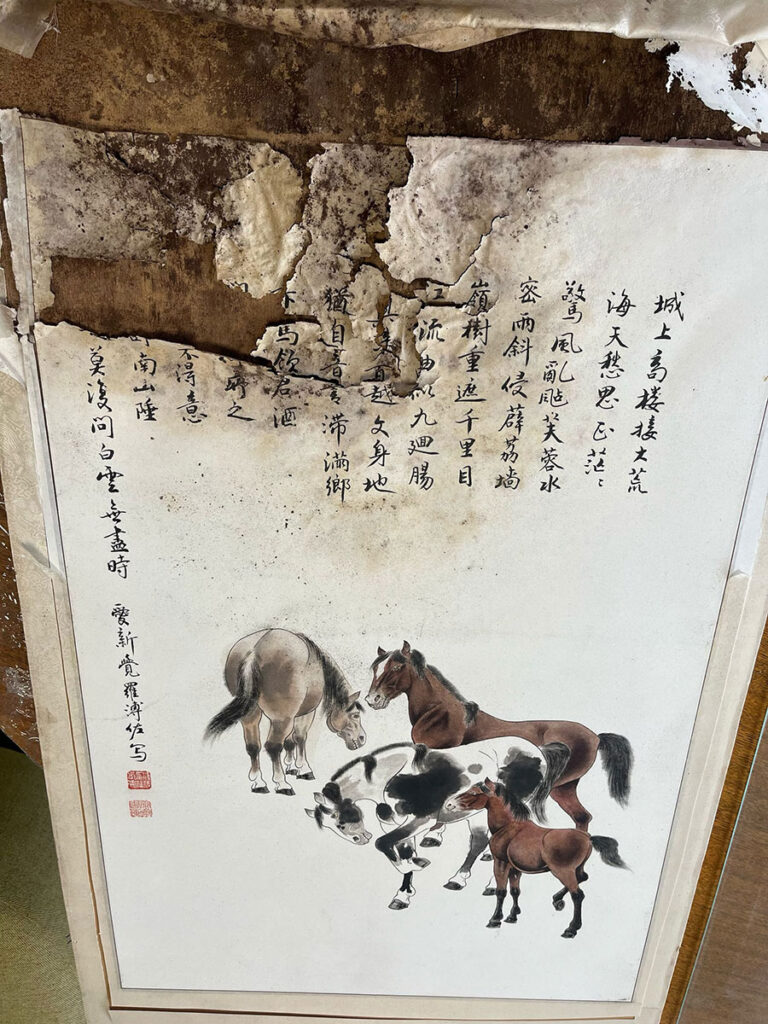 城上高楼接大荒
海天愁思正茫〻
驚風亂颭芙蓉水
密雨斜侵薜荔墙
嶺樹重遮千里目
流曲似九廻腸
来百越文身地
猶自音書滞滿鄉
下馬飲君酒
所之
不得意
南山陲
莫復問白雲無盡時 愛新覺羅溥佐写